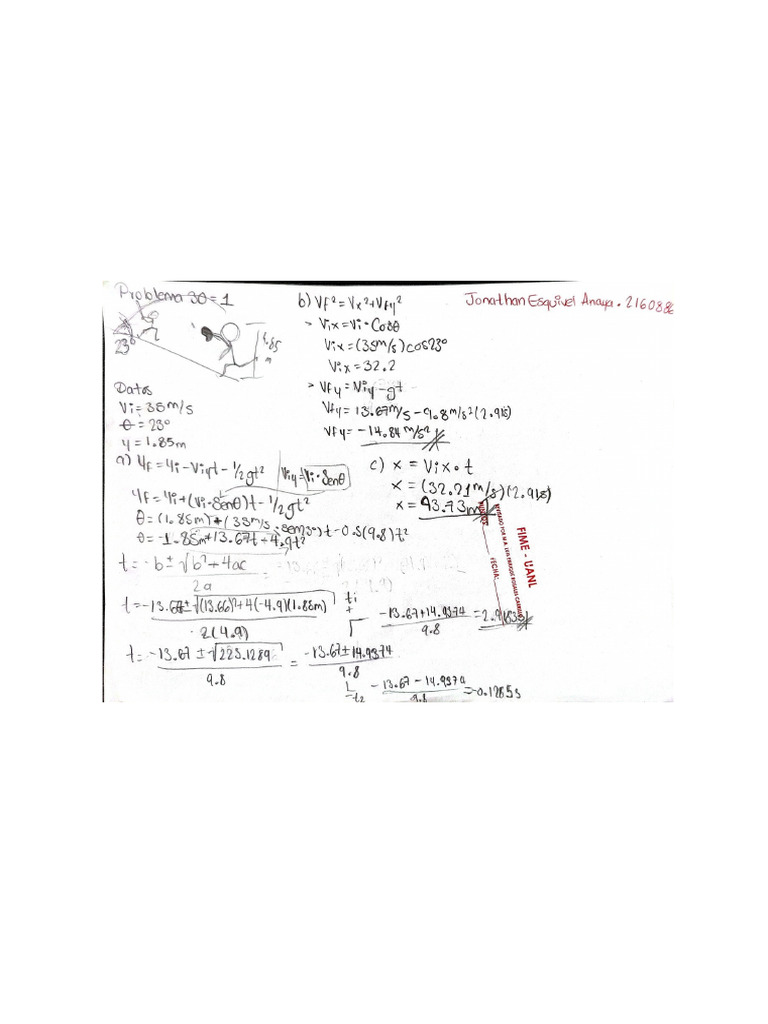 Problema 30 = 1
Jonathan Esquivel Anaya • 216088
23°
1.85
Datos
Vi = 35 m/s
θ = 23°
y = 1.85m
a) Yf = Yi - Viyt - 1/2gt² Viy = Vi · Senθ
Yf = Yi + (Vi · Senθ)t - 1/2gt²
0 = (1.85m) + (35m/s · sen23°)t - 0.5(9.8)t²
0 = -1.85m + 13.67t + 4.9t²
t = -b ± √b² + 4ac
2a
t = -13.67 ± √(13.66)² + 4(-4.9)(1.85m)
2(4.9)
t = -13.67 ± √223.1289 = -13.67 ± 14.9374
9.8 9.8
t1
+
-13.67 + 14.9374 = 2.9
9.8
-t2
-13.67 - 14.9374 = -0.1285s
9.8
b) Vf² = Vx² + Vfy²
> Vix = Vi · Cosθ
Vix = (35m/s) cos23°
Vix = 32.2
> Vfy = Viy - gt
Vfy = 13.67m/s - 9.8m/s²(2.91s)
Vfy = -14.84m/s²
c) x = Vix · t
x = (32.21m/s)(2.91s)
x = 93.73m
FIME - UANL
FECHA: